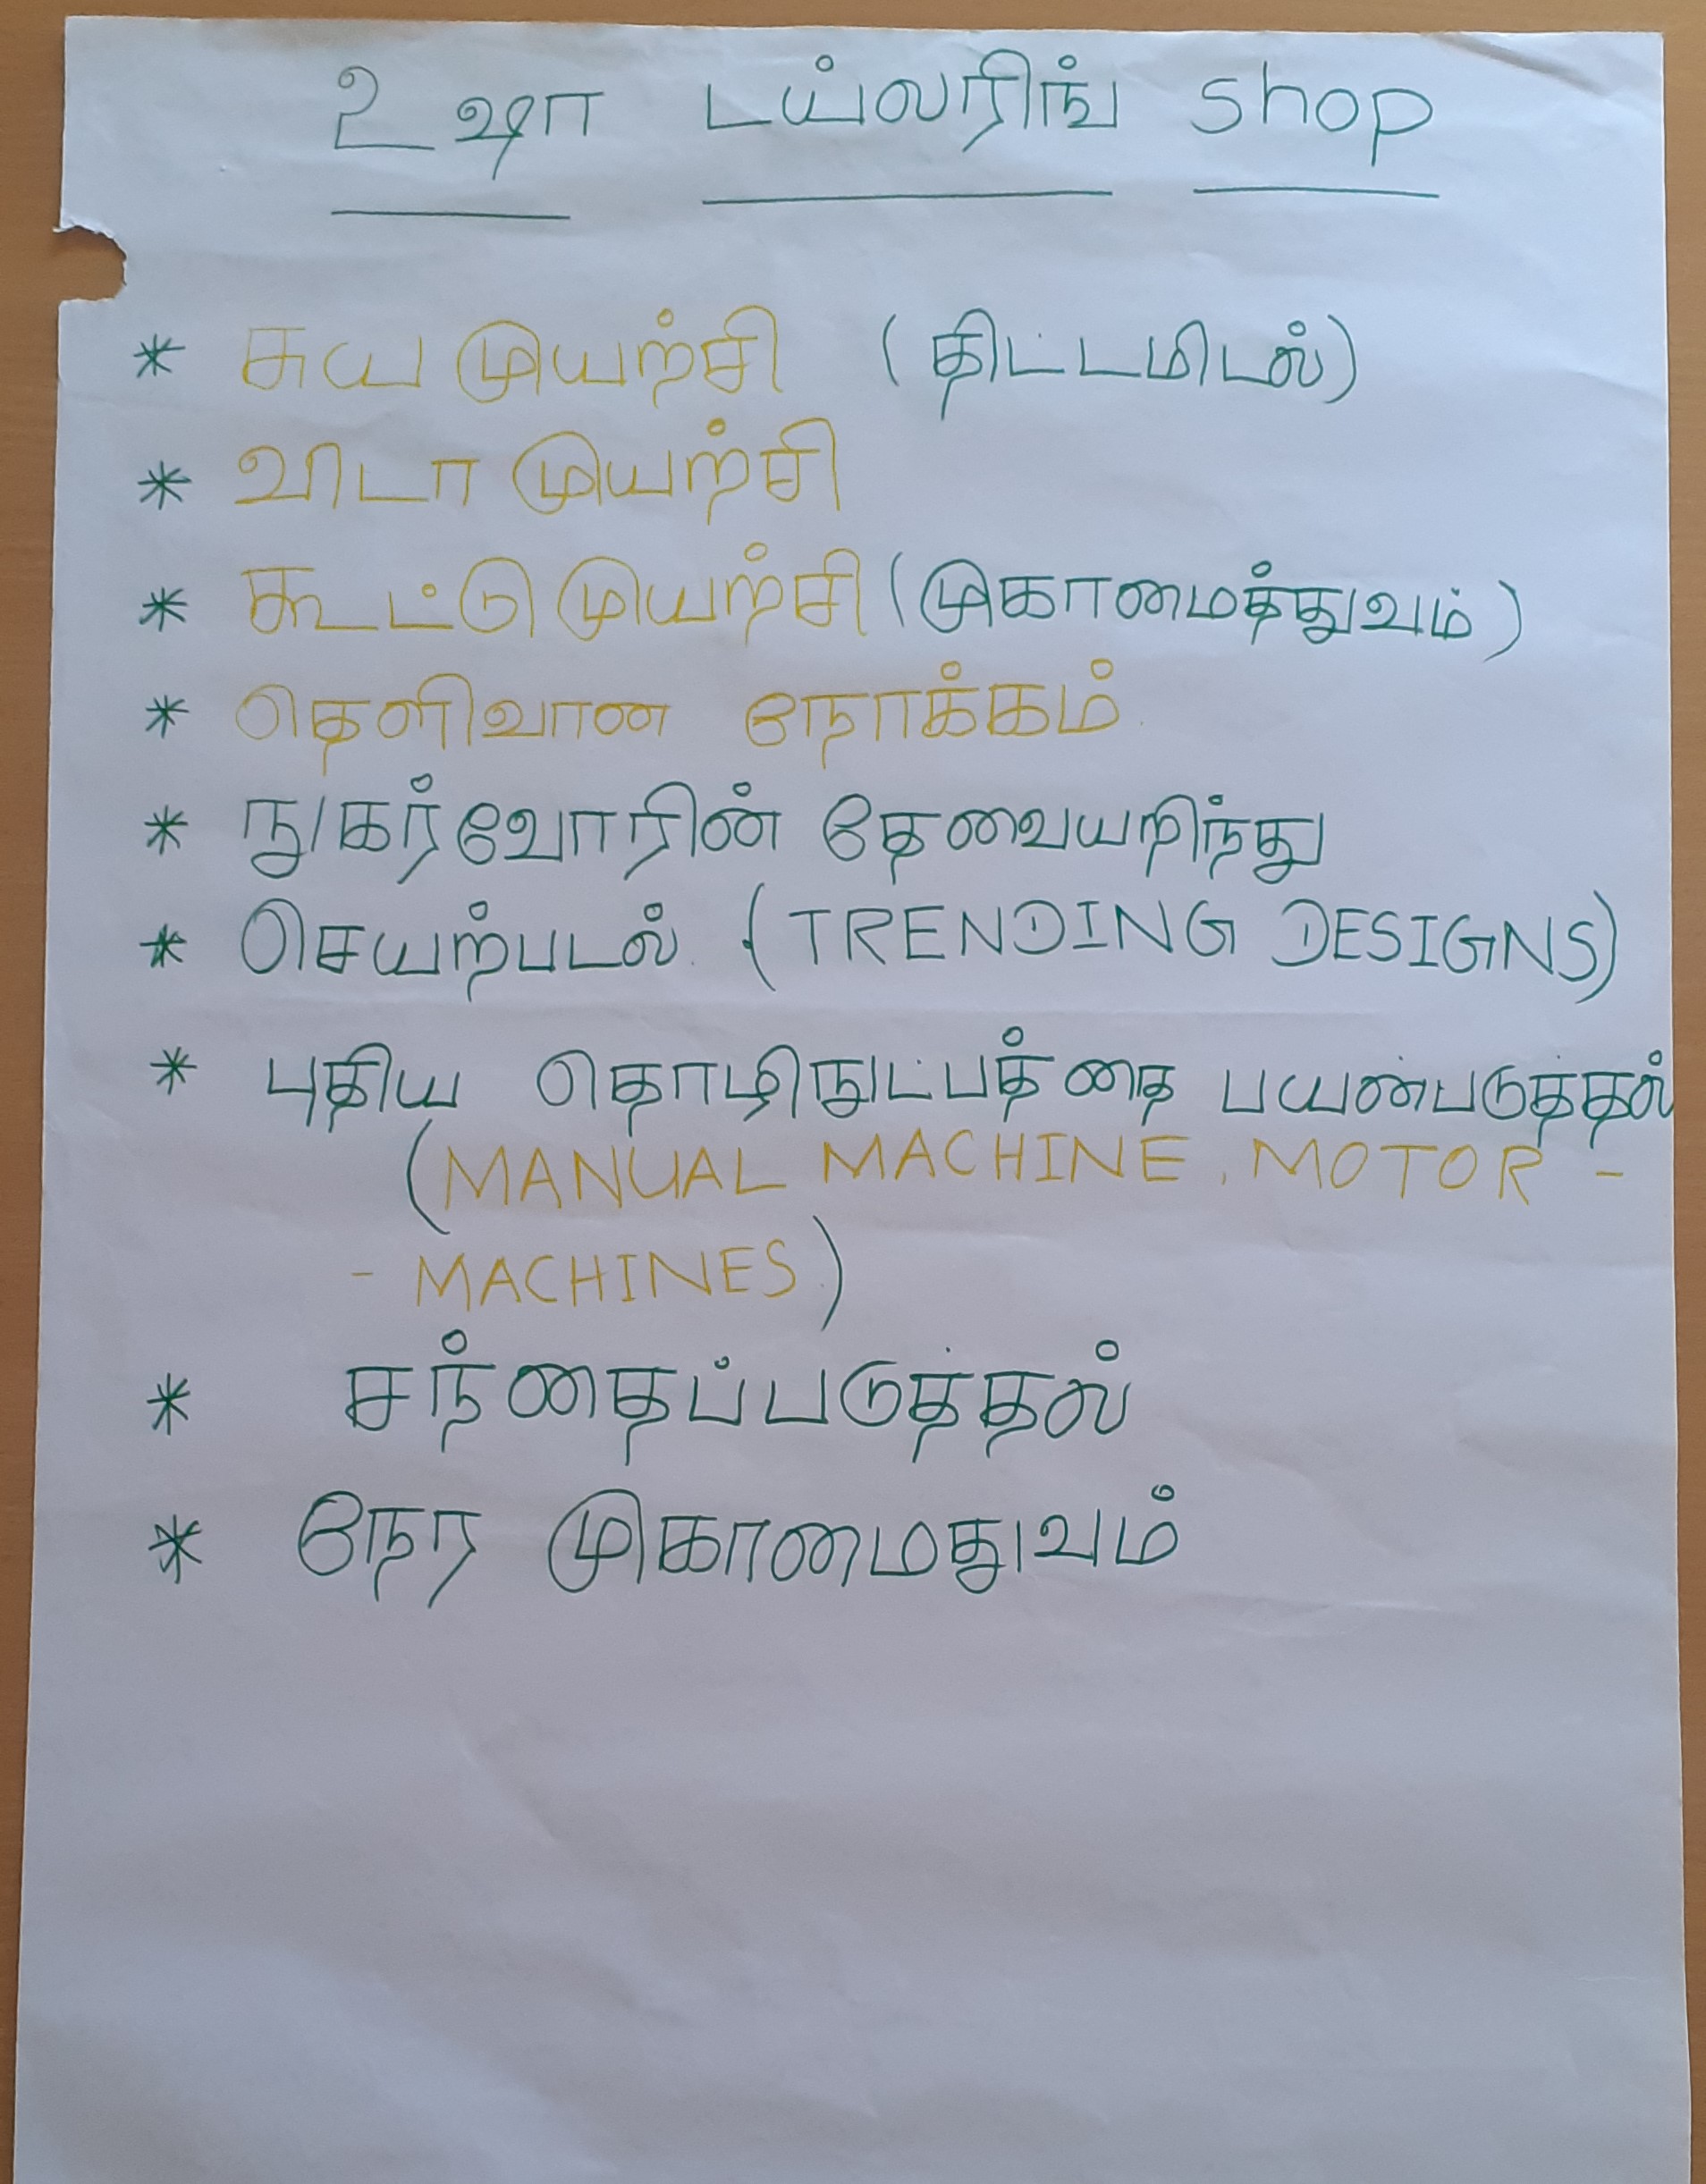 உஷா டய்லரிங் shop
* சுய முயற்சி (திட்டமிடல்)
* விடா முயற்சி
* கூட்டு முயற்சி (முகாமைத்துவம்)
* தெளிவான நோக்கம்
* நுகர்வோரின் தேவையறிந்து
* செயற்படல் (TRENDING DESIGNS)
* புதிய தொழிநுட்பத்தை பயன்படுத்தல்
(MANUAL MACHINE, MOTOR -
- MACHINES)
* சந்தைப்படுத்தல்
* நேர முகாமைதுவம்